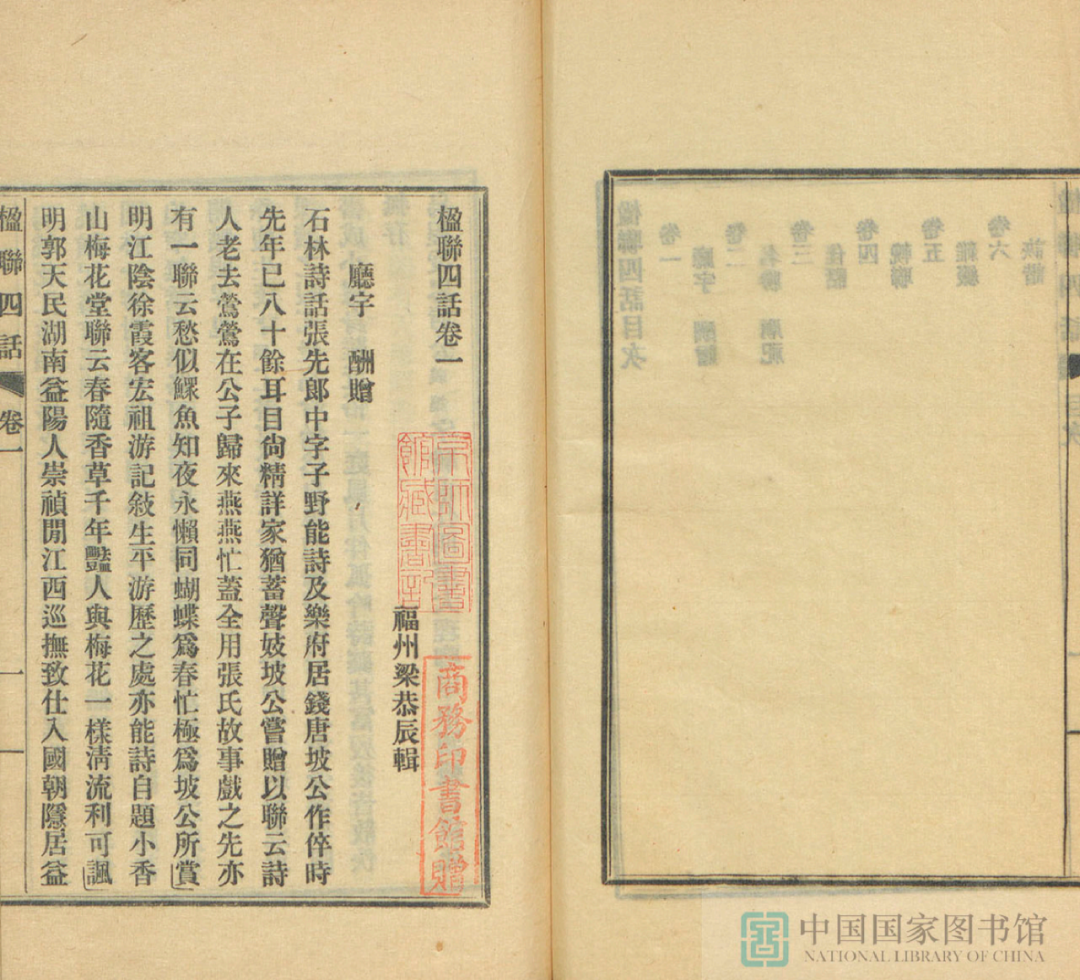 楹聯四話卷一
廳宇　酬贈
福州梁恭辰輯
石林詩話張先郎中字子野能詩及樂府居錢唐坡公作倅時
先年已八十餘耳目尙精詳家猶蓄聲妓坡公嘗贈以聯云詩
人老去鶯鶯在公子歸來燕燕忙蓋全用張氏故事戲之先亦
有一聯云愁似鰥魚知夜永懶同蝴蝶爲春忙極爲坡公所賞
明江陰徐霞客宏祖游記敍生平游歷之處亦能詩自題小香
山梅花堂聯云春隨香草千年豔人與梅花一樣淸流利可諷
明郭天民湖南益陽人崇禎閒江西巡撫致仕入國朝隱居益
楹聯四話
卷一
一
京師圖書
館藏書記
商務印書館贈
楹聯四話目次
卷一
廳宇　酬贈
卷二
卷三
卷四
卷五
輓聯
卷六
雜綴
中国国家图书馆
NATIONAL LIBRARY OF CHINA